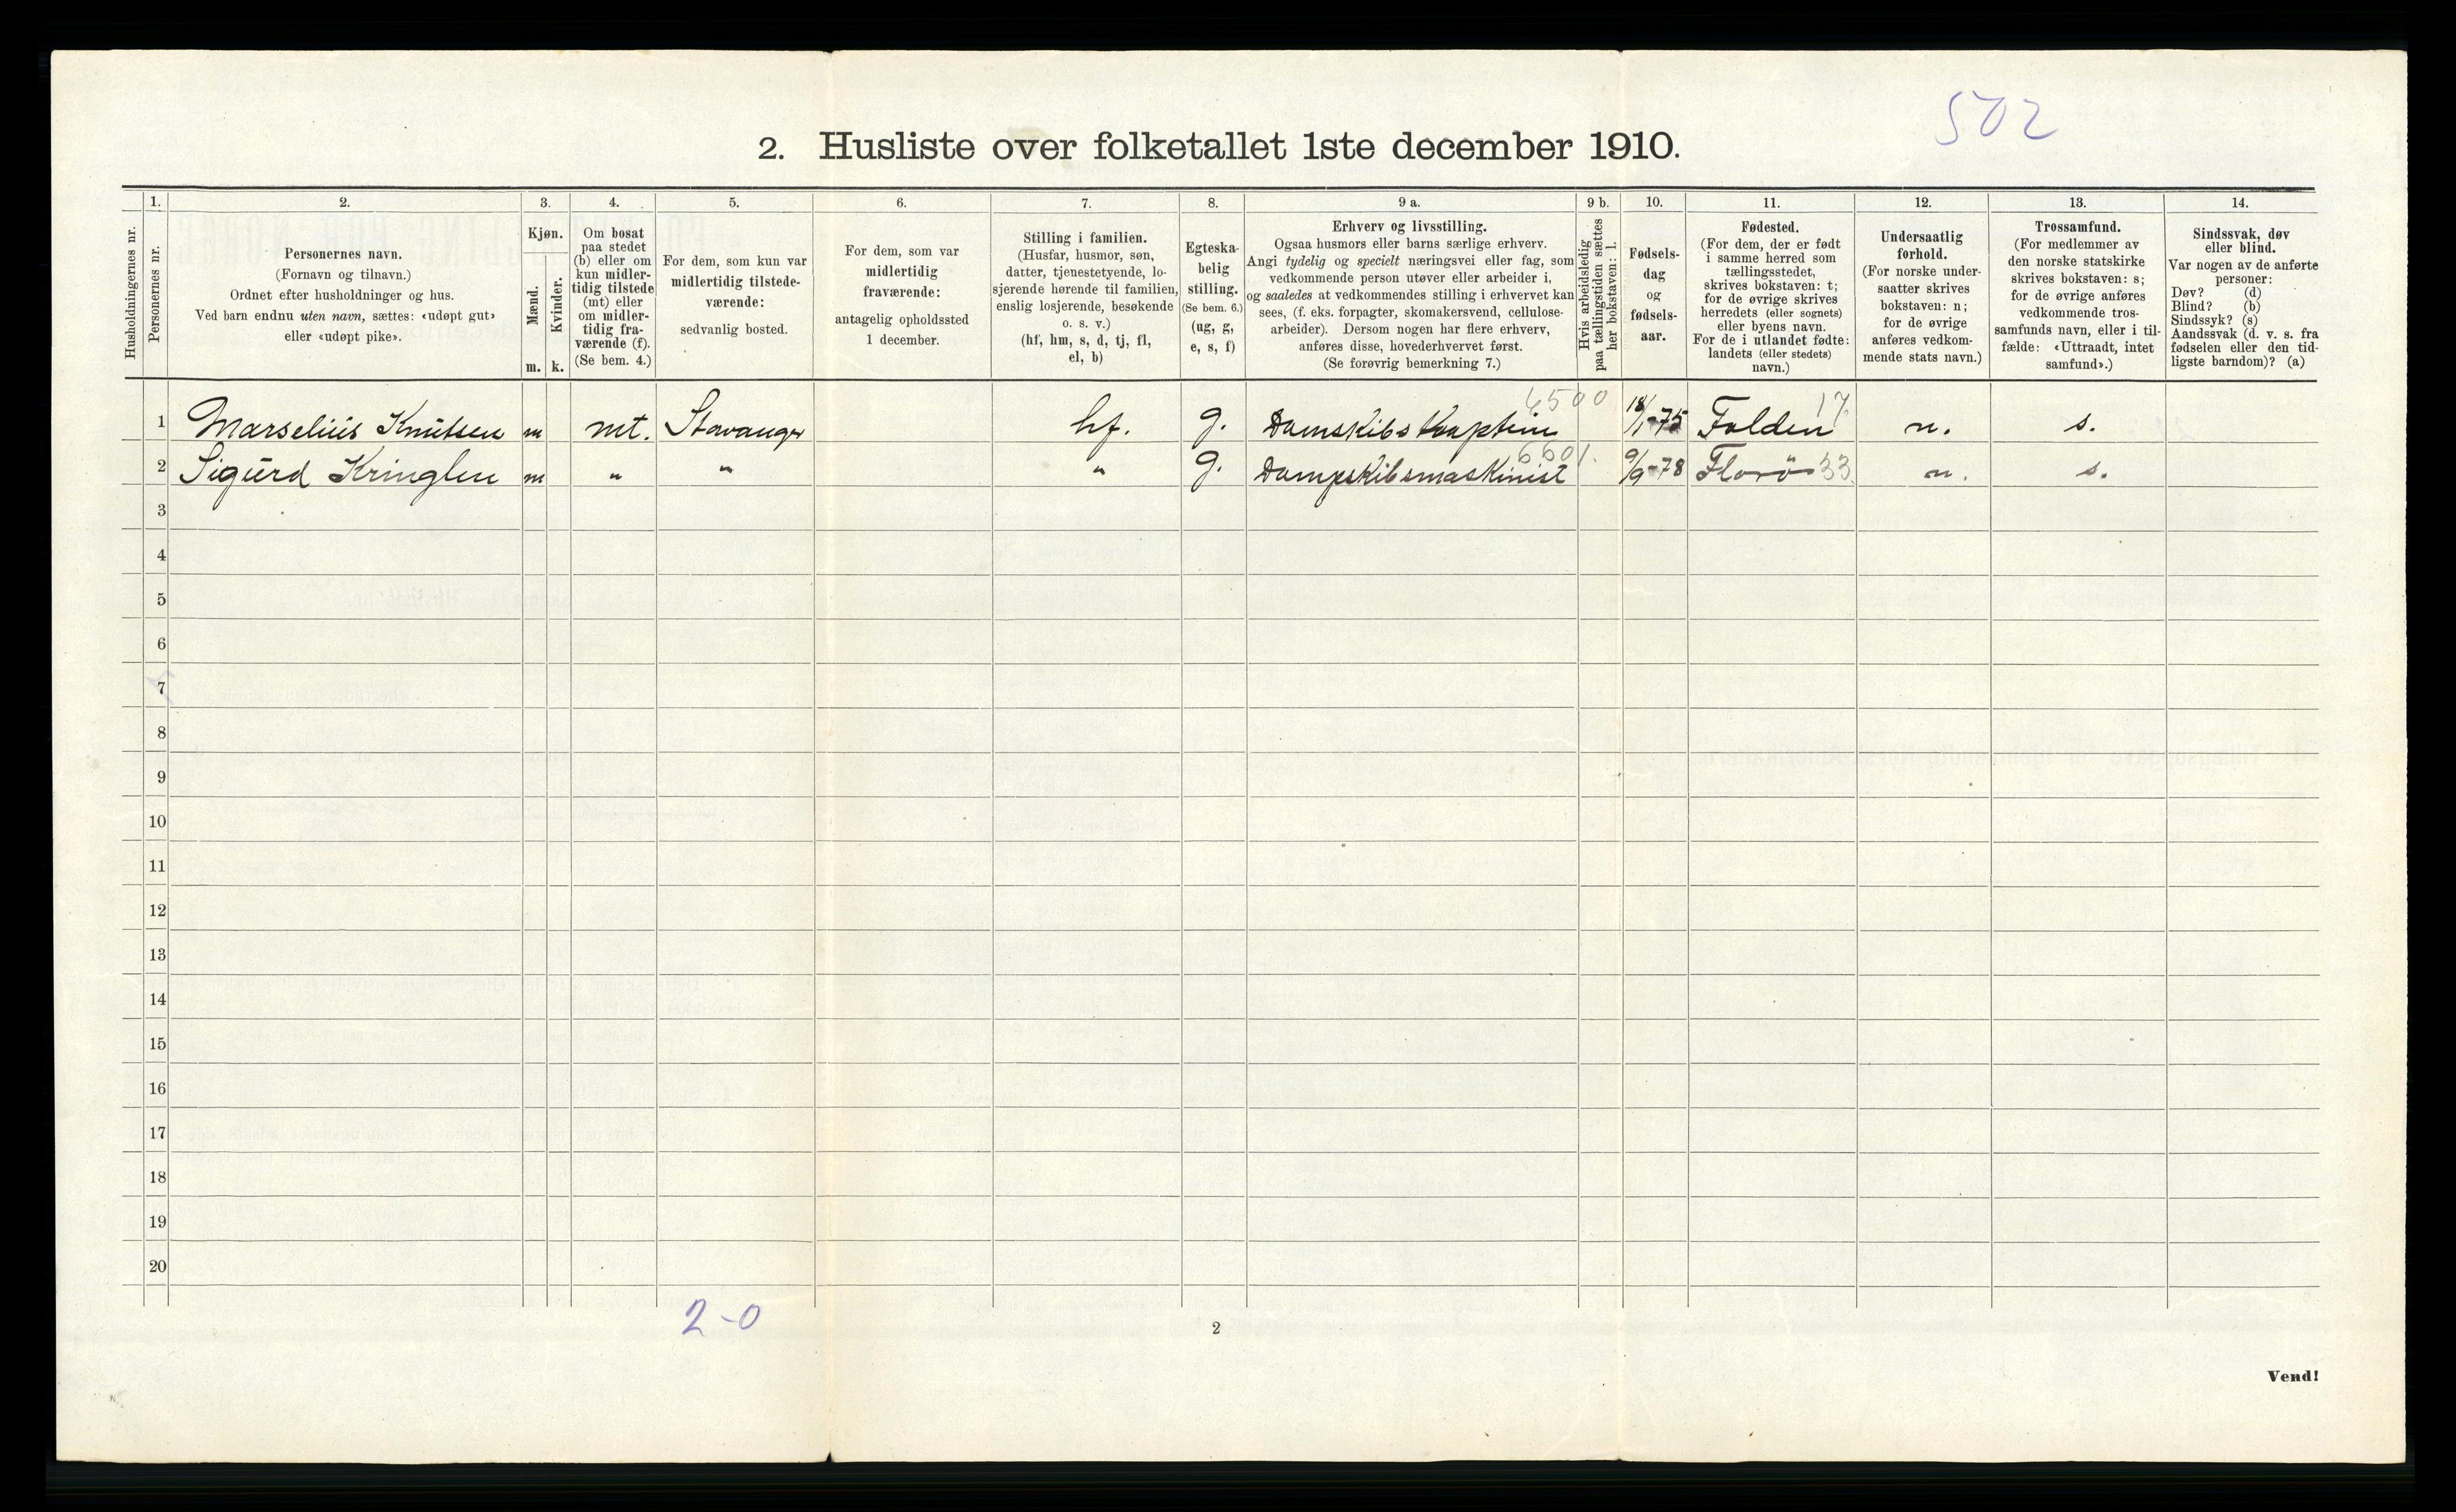 502
2. Husliste over folketallet 1ste december 1910.
Husholdningernes nr.
1.
Personernes nr.
2.
Personernes navn.
(Fornavn og tilnavn.)
Ordnet efter husholdninger og hus.
Ved barn endnu uten navn, sættes: «udøpt gut»
eller «udøpt pike».
3.
Kjøn.
Mænd.
Kvinder.
m. k.
4.
Om bosat
paa stedet
(b) eller om
kun midler-
tidig tilstede
(mt) eller
om midler-
tidig fra-
værende (f).
(Se bem. 4.)
5.
For dem, som kun var
midlertidig tilstede-
værende:
sedvanlig bosted.
6.
For dem, som var
midlertidig
fraværende:
antagelig opholdssted
1 december.
7.
Stilling i familien.
(Husfar, husmor, søn,
datter, tjenestetyende, lo-
sjerende hørende til familien,
enslig losjerende, besøkende
o. s. v.)
(hf, hm, s, d, tj, fl,
el, b)
8.
Egteska-
belig
stilling.
(Se bem. 6.)
(ug, g,
e, s, f)
9 a.
Erhverv og livsstilling.
Ogsaa husmors eller barns særlige erhverv.
Angi tydelig og specielt næringsvei eller fag, som
vedkommende person utøver eller arbeider i,
og saaledes at vedkommendes stilling i erhvervet kan
sees, (f. eks. forpagter, skomakersvend, cellulose-
arbeider). Dersom nogen har flere erhverv,
anføres disse, hovederhvervet først.
(Se forøvrig bemerkning 7.)
9 b.
Hvis arbeidsledig
paa tællingstiden sættes
her bokstaven: l.
10.
Fødsels-
dag
og
fødsels-
aar.
11.
Fødested.
(For dem, der er født
i samme herred som
tællingsstedet,
skrives bokstaven: t;
for de øvrige skrives
herredets (eller sognets)
eller byens navn.
For de i utlandet fødte:
landets (eller stedets)
navn.)
12.
Undersaatlig
forhold.
(For norske under-
saatter skrives
bokstaven: n;
for de øvrige
anføres vedkom-
mende stats navn.)
13.
Trossamfund.
(For medlemmer av
den norske statskirke
skrives bokstaven: s;
for de øvrige anføres
vedkommende tros-
samfunds navn, eller i til-
fælde: «Uttraadt, intet
samfund».)
14.
Sindssvak, døv
eller blind.
Var nogen av de anførte
personer:
Døv? (d)
Blind? (b)
Sindssyk? (s)
Aandssvak (d. v. s. fra
fødselen eller den tid-
ligste barndom)? (a)
6500 17
1 Marselius Knutsen m mt. Stavanger hf. g. Damskibs Kaptein 18/1-75 Folden n. s.
6601.
2 Sigurd Kringlen m " " " g. Dampskibsmaskinist 9/9-78 Florö 33. n. s.
3
4
5
6
7
8
9
10
11
12
13
14
15
16
17
18
19
20
2-0
2
Vend!